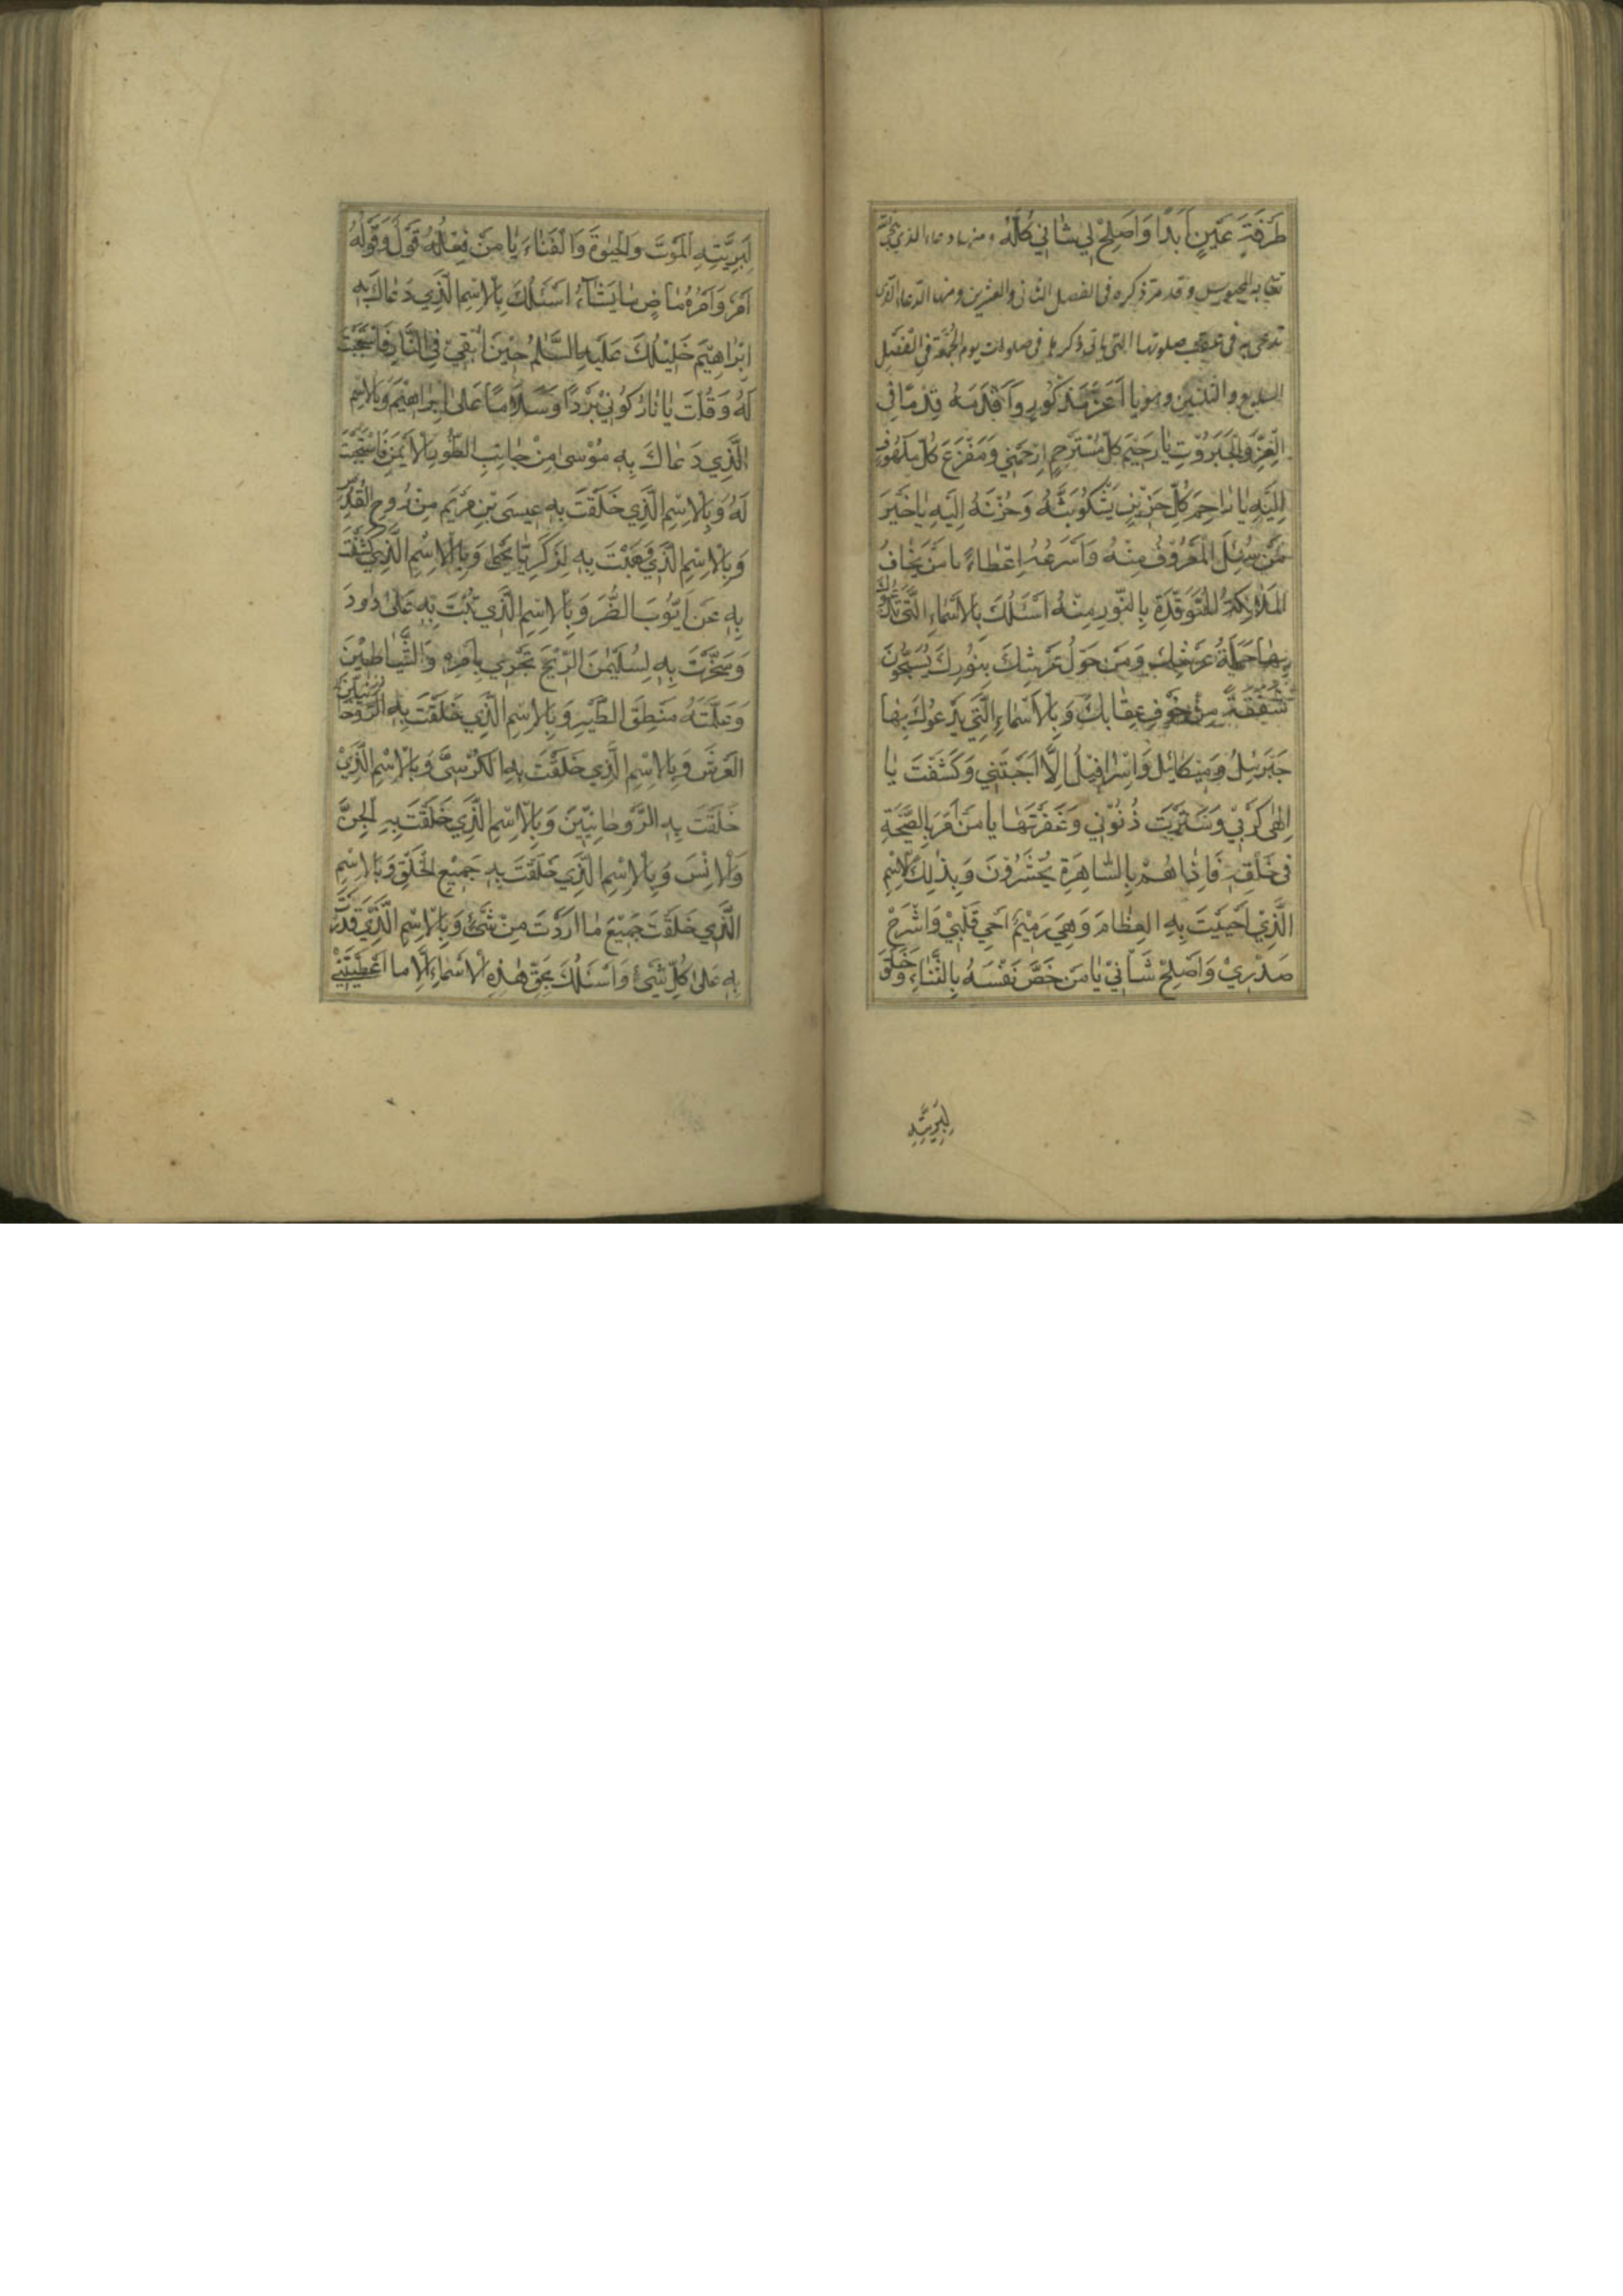 طَرْفَةَ عَيْنٍ اَبَدًا وَاَصْلِحْ لِي شَاْنِي كُلَّهُ ومنها دعاء الذي
به المحبوس وقد مرّ ذكره فى الفصل الثانى والعشرين ومنها الدّعاء الذى
تدعى به فى عقيب صلوتها التى ياتى ذكرها فى صلوات يوم الجُمُعَة فِي الْفَصْلِ
السابع والثلثين وهو يا اَعَزَّ مَذْكُورٍ وَاَقْدَمَهُ قِدْمًا فِي
الْعِزِّ وَالْجَبَرُوْتِ يَا رَحِيْمَ كُلِّ مُسْتَرْحِمٍ اِرْحَمْنِي وَمَفْزَعَ كُلِّ مَلْهُوفٍ
اِلَيْهِ يَا رَاحِمَ كُلِّ حَزِيْنٍ يَشْكُو بَثَّهُ وَحُزْنَهُ اِلَيْهِ يَا خَيْرَ
مَنْ سُئِلَ الْمَعْرُوْفُ مِنْهُ وَاَسْرَعُهُ اِعْطَاءً يَا مَنْ يَخَافُ
الْمَلَائِكَةُ الْمُتَوَقِّدَةِ بِالنُّوْرِ مِنْهُ اَسْئَلُكَ بِالْاَسْمَاءِ الَّتِي تَدْعُوْكَ
بِهَا حَمَلَةُ عَرْشِكَ وَمَنْ حَوْلَ عَرْشِكَ بِنُوْرِكَ يُسَبِّحُوْنَ
شَفَقَةً مِنْ خَوْفِ عِقَابِكَ وَبِالْاَسْمَاءِ الَّتِي يَدْعُوْكَ بِهَا
جَبْرَئِيلُ وَمِيْكَائِلُ وَاِسْرَافِيْلُ اِلَّا اَجَبْتَنِي وَكَشَفْتَ يَا
اِلٰهِي كُرْبَتِي وَسَتَرْتَ ذُنُوْبِي وَغَفَرْتَهَا يَا مَنْ اَمَرَ بِالصَّيْحَةِ
فِي خَلْقِهِ فَاِذَا هُمْ بِالسَّاهِرَةِ يُحْشَرُوْنَ وَبِذٰلِكَ الْاِسْمِ
الَّذِيْ اَحْيَيْتَ بِهِ الْعِظَامَ وَهِيَ رَمِيْمٌ اَحْيِ قَلْبِيْ وَاشْرَحْ
صَدْرِيْ وَاَصْلِحْ شَاْنِيْ يَا مَنْ خَصَّ نَفْسَهُ بِالْبَقَاءِ وَخَلَقَ
لِبَرِيَّتِهِ
لِبَرِيَّتِهِ الْمَوْتَ وَالْحَيٰوةَ وَالْفَنَاءَ يَا مَنْ فِعْلُهُ قَوْلٌ وَقَوْلُهُ
اَمْرٌ وَاَمْرُهُ مَاضٍ مَا يَشَاءُ اَسْئَلُكَ بِالْاِسْمِ الَّذِي دَعَاكَ بِهِ
اِبْرَاهِيْمَ خَلِيْلُكَ عَلَيْهِ السَّلٰمُ حِيْنَ اُلْقِيَ فِي النَّارِ فَاسْتَجَبْتَ
لَهُ وَقُلْتَ يَا نَارُ كُوْنِيْ بَرْدًا وَسَلَامًا عَلٰى اِبْرَاهِيْمَ وَبِالْاِسْمِ
الَّذِي دَعَاكَ بِهِ مُوْسٰى مِنْ جَانِبِ الطُّوْرِ الْاَيْمَنِ فَاسْتَجَبْتَ
لَهُ وَبِالْاِسْمِ الَّذِي خَلَقْتَ بِهِ عِيسَى بْنِ مَرْيَمَ مِنْ رُوحِ الْقُدُسِ
وَبِالْاِسْمِ الَّذِي وَهَبْتَ بِهِ لِزَكَرِيَّا يَحْيٰى وَبِالْاِسْمِ الَّذِي كَشَفْتَ
بِهِ عَنْ اَيُّوْبَ الضُّرَّ وَبِالْاِسْمِ الَّذِي تُبْتَ بِهِ عَلٰى دَاودَ
وَسَخَّرْتَ بِهِ لِسُلَيْمٰنَ الرِّيْحَ تَجْرِي بِاَمْرِهِ وَالشَّيَاطِيْنَ
وَعَلَّمْتَهُ مَنْطِقَ الطَّيْرِ وَبِالْاِسْمِ الَّذِي خَلَقْتَ بِهِ الرَّوْحَانِيِّيْنَ
الْعَرْشَ وَبِالْاِسْمِ الَّذِي خَلَقْتَ بِهِ الْكُرْسِيَّ وَبِالْاِسْمِ الَّذِيْ
خَلَقْتَ بِهِ الرَّوْحَانِيِّيْنَ وَبِالْاِسْمِ الَّذِي خَلَقْتَ بِهِ الْجِنَّ
وَالْاِنْسَ وَبِالْاِسْمِ الَّذِي خَلَقْتَ بِهِ جَمِيْعَ الْخَلْقِ وَبِالْاِسْمِ
الَّذِي خَلَقْتَ جَمِيْعَ مَا اَرَدْتَ مِنْ شَيْئٍ وَبِالْاِسْمِ الَّذِيْ قَدَرْتَ
بِهِ عَلٰى كُلِّ شَيْئٍ وَاَسْئَلُكَ بِحَقِّ هٰذِهِ الْاَسْمَاءِ اِلَّا مَا اَعْطَيْتَنِيْ